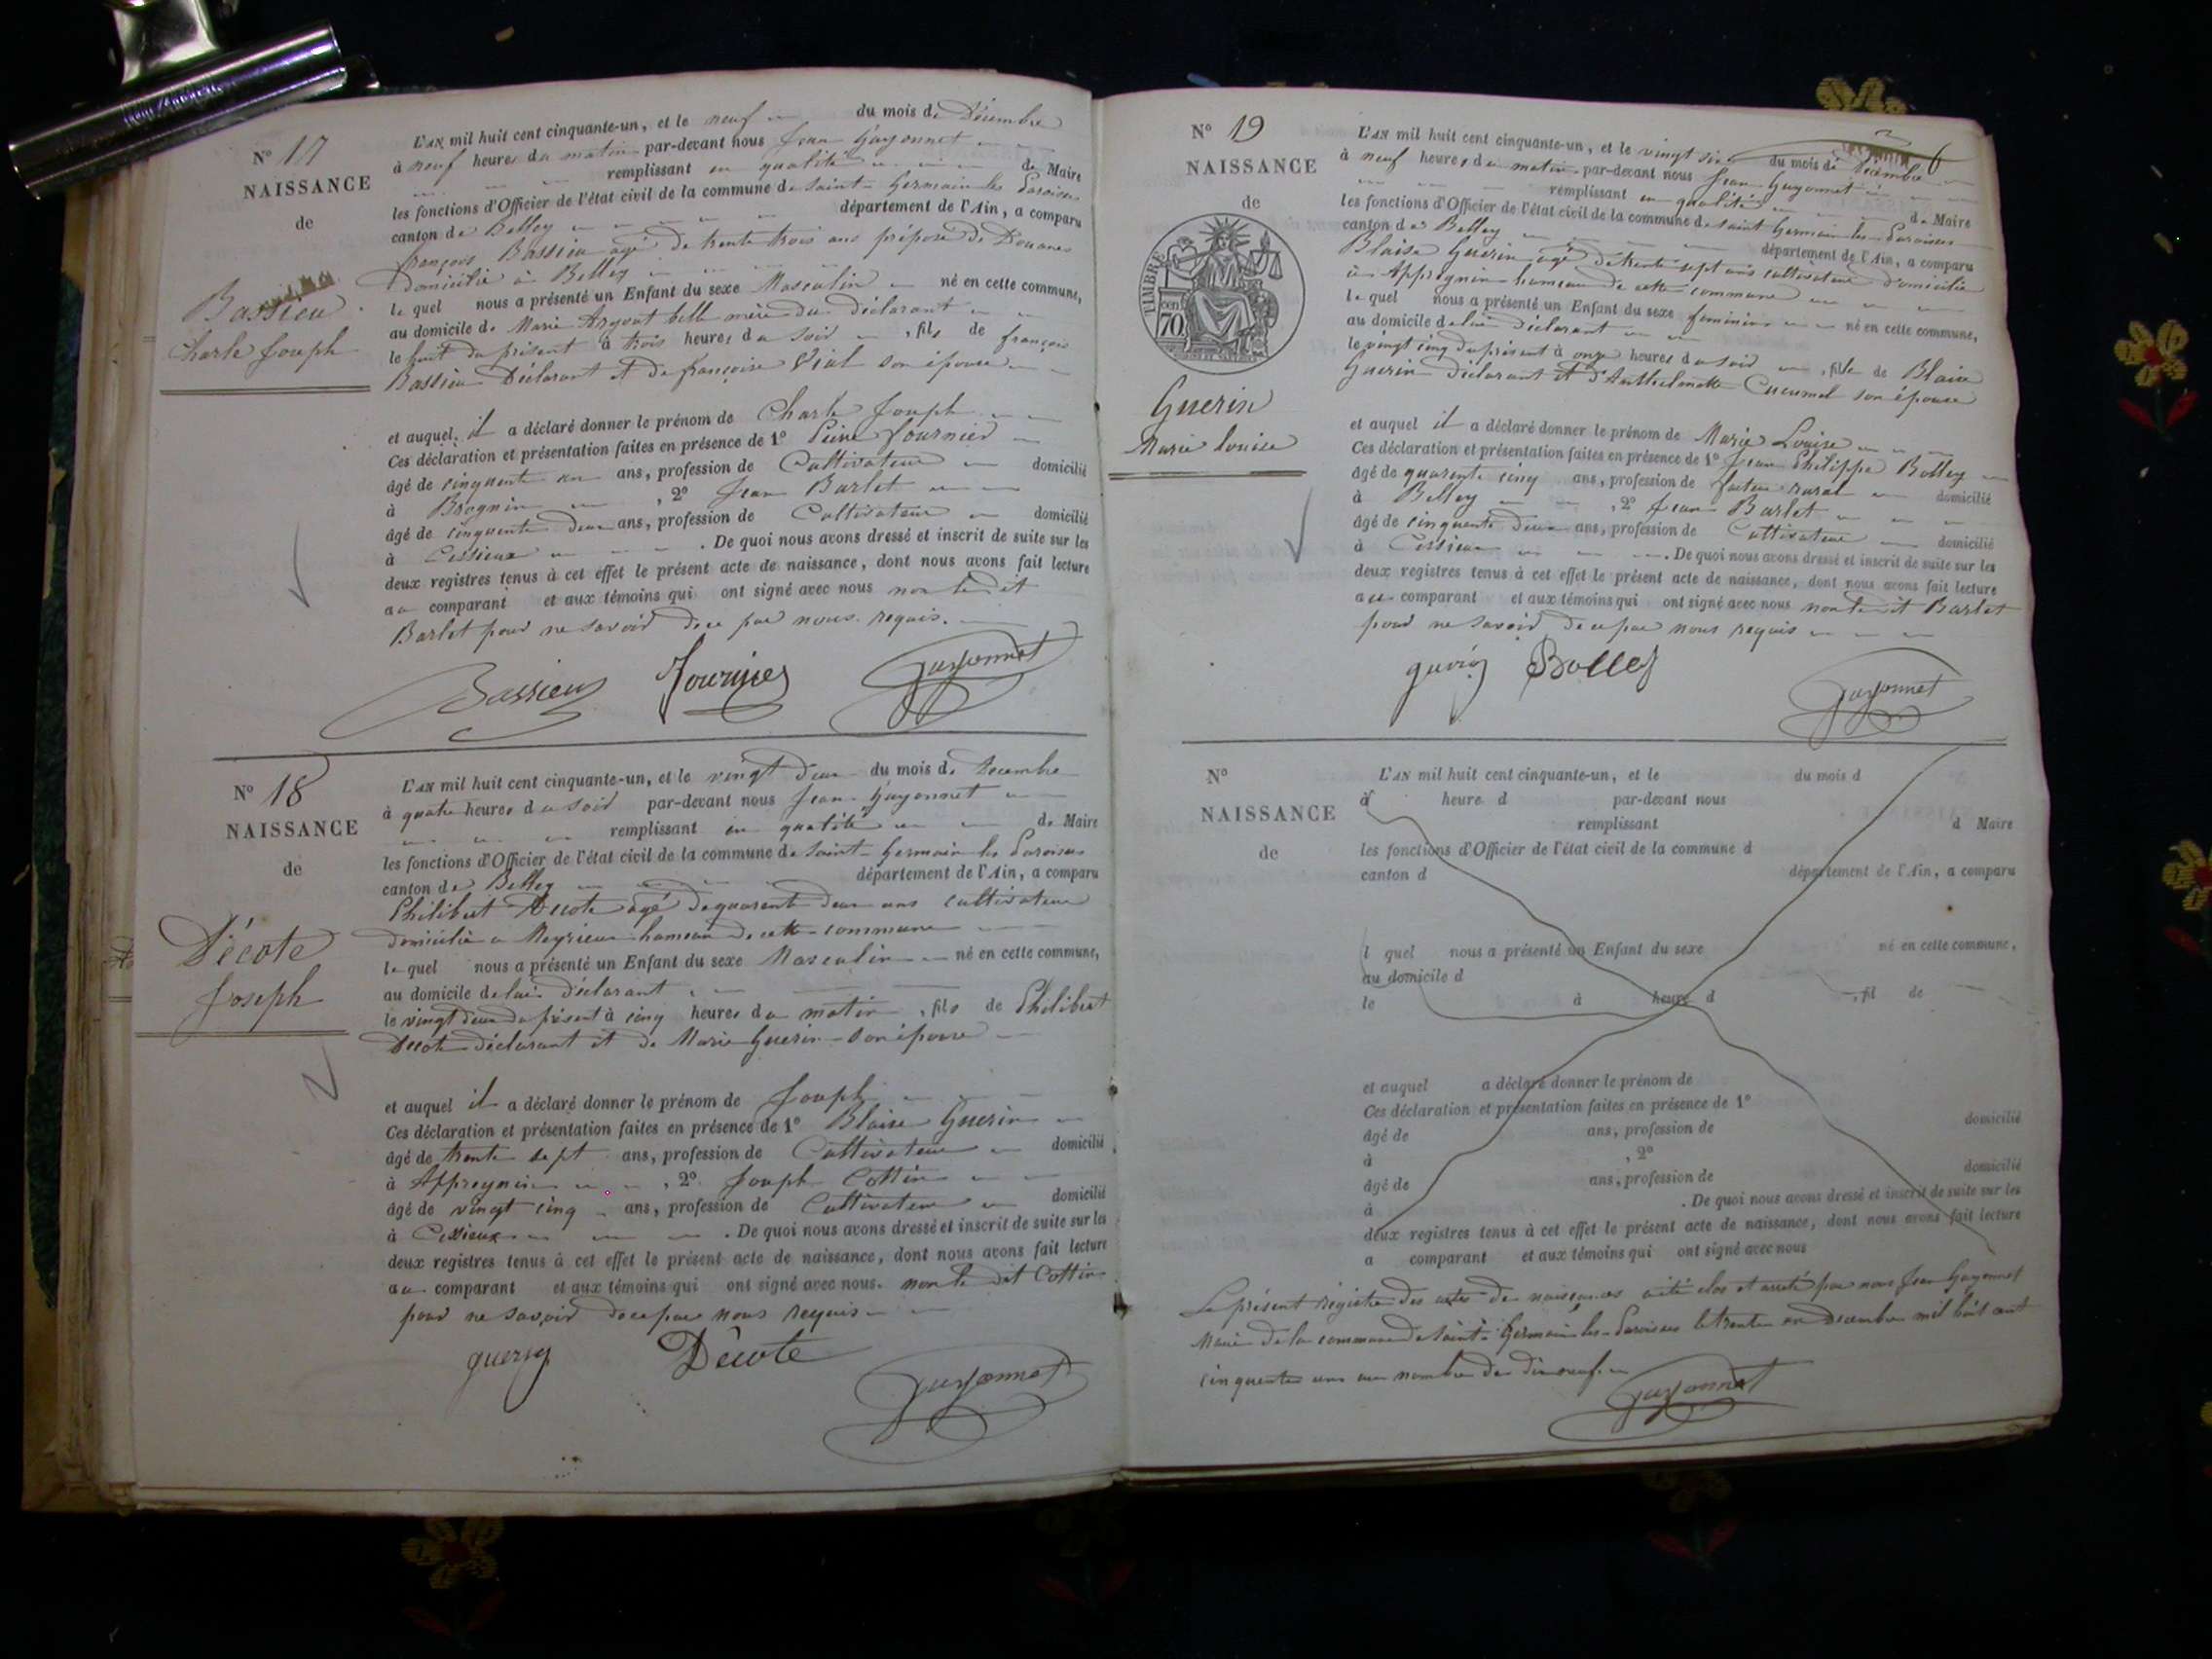 N° 17
NAISSANCE
de
Bassieu
Charle Joseph
L'AN mil huit cent cinquante-un, et le neuf du mois de Décembre
à neuf heures du matin par-devant nous Jean Guyonnet
remplissant en qualité de Maire
les fonctions d'Officier de l'état civil de la commune de Saint-Germain les Paroisses
canton de Belley département de l'Ain, a comparu
françois Bassieu agé de trente trois ans préposé de Douanes
domicilié à Belley
le quel nous a présenté un Enfant du sexe Masculin né en cette commune,
au domicile de Marie Argout belle mère du déclarant
le huit du présent à trois heures du soir , fils de françois
Bassieu Déclarant et de françoise Vial son épouse
et auquel il a déclaré donner le prénom de Charle Joseph
Ces déclaration et présentation faites en présence de 1° Peire fournier
âgé de cinquante un ans, profession de Cultivateur domicilié
à Brognin , 2° Jean Barlet
âgé de cinquante deux ans, profession de Cultivateur domicilié
à Cessieux . De quoi nous avons dressé et inscrit de suite sur les
deux registres tenus à cet effet le présent acte de naissance, dont nous avons fait lecture
au comparant et aux témoins qui ont signé avec nous non ledit
Barlet pour ne savoir de ce par nous requis.
Bassieu Fournier Guyonnet
N° 18
NAISSANCE
de
Décote
Joseph
L'AN mil huit cent cinquante-un, et le vingt deux du mois de Decembre
à quatre heures du soir par-devant nous Jean Guyonnet
remplissant en qualité de Maire
les fonctions d'Officier de l'état civil de la commune de Saint-Germain les Paroisses
canton de Belley département de l'Ain, a comparu
Philibert Decote agé de quarente deux ans cultivateur
domicilié a Meyrieux hameau de cette commune
le quel nous a présenté un Enfant du sexe Masculin né en cette commune,
au domicile de lui déclarant
le vingt deux du présent à cinq heures du matin , fils de Philibert
Decote déclarant et de Marie Guerin son épouse
et auquel il a déclaré donner le prénom de Joseph
Ces déclaration et présentation faites en présence de 1° Blaise Guerin
âgé de trente sept ans, profession de Cultivateur domicilié
à Appregnin , 2° Joseph Cottin
âgé de vingt cinq ans, profession de Cultivateur domicilié
à Cessieux . De quoi nous avons dressé et inscrit de suite sur les
deux registres tenus à cet effet le présent acte de naissance, dont nous avons fait lecture
au comparant et aux témoins qui ont signé avec nous. non le dit Cottin
pour ne savoir de ce par nous requis
Décote Guyonnet
N° 19
NAISSANCE
de
TIMBRE
70 cen
Guerin
Marie louise
6
L'AN mil huit cent cinquante-un, et le vingt six du mois de Décembre
à neuf heures du matin par-devant nous Jean Guyonnet
remplissant en qualité de Maire
les fonctions d'Officier de l'état civil de la commune de Saint-Germain les Paroisses
canton de Belley département de l'Ain, a comparu
Blaise Guerin agé de trente sept ans cultivateur domicilié
à Appregnin hameau de cette commune
le quel nous a présenté un Enfant du sexe feminin né en cette commune,
au domicile de lui déclarant
le vingt cinq du présent à onze heures du soir , fille de Blaise
Guerin déclarant et d'Anthelmette Cucumel son épouse
et auquel il a déclaré donner le prénom de Marie Louise
Ces déclaration et présentation faites en présence de 1° Jean Philippe Bolley
âgé de quarente cinq ans, profession de facteur rural domicilié
à Belley , 2° Jean Barlet
âgé de cinquante deux ans, profession de Cultivateur domicilié
à Cessieux . De quoi nous avons dressé et inscrit de suite sur les
deux registres tenus à cet effet le présent acte de naissance, dont nous avons fait lecture
au comparant et aux témoins qui ont signé avec nous non ledit Barlet
pour ne savoir de ce par nous requis
Bolley
Guyonnet
N°
NAISSANCE
de
L'AN mil huit cent cinquante-un, et le du mois d
à heure d par-devant nous
remplissant d Maire
les fonctions d'Officier de l'état civil de la commune d
canton d département de l'Ain, a comparu
l quel nous a présenté un Enfant du sexe né en cette commune,
au domicile d
le à heure d , fil de
et auquel a déclaré donner le prénom de
Ces déclaration et présentation faites en présence de 1°
âgé de ans, profession de domicilié
à , 2°
âgé de ans, profession de domicilié
à . De quoi nous avons dressé et inscrit de suite sur les
deux registres tenus à cet effet le présent acte de naissance, dont nous avons fait lecture
a comparant et aux témoins qui ont signé avec nous
Le présent registre des actes de naissances a été clos et arreté par nous Jean Guyonnet
Maire de la commune de Saint-Germain les Paroisses le trente un decembre mil huit cent
cinquante un au nombre de dix neuf
Guyonnet